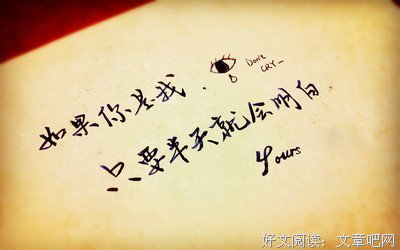 如果你是我.
Don't
CRY_
只要半天就会明白
Yours
好文阅读：文章吧网